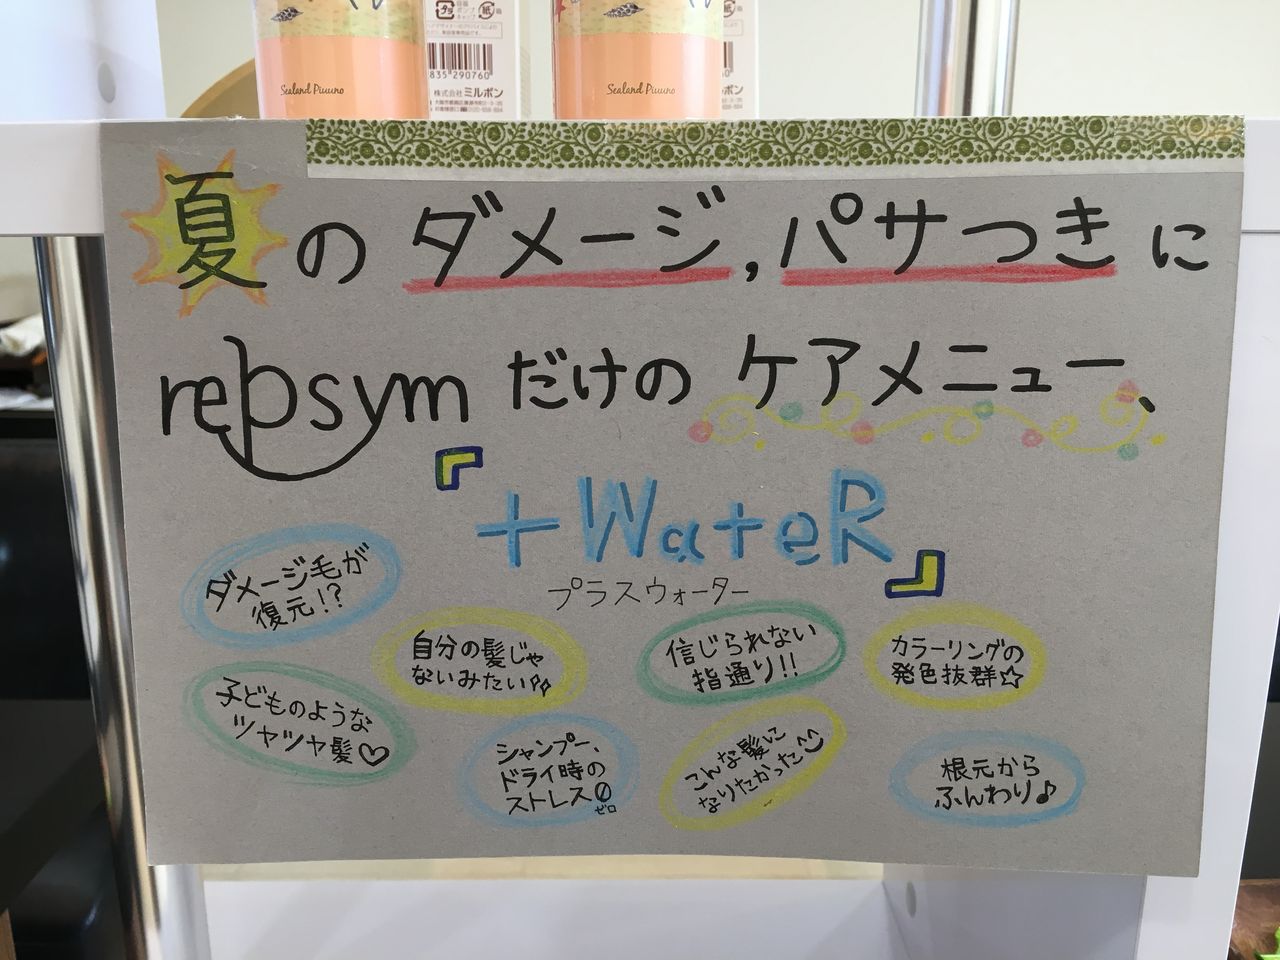 Sealand Piuuno
835 290760
株式会社 ミルボン
Sealand Piuuno
夏のダメージ,パサつきに
repsymだけのケアメニュー、
『+WateR』
プラスウォーター
ダメージ毛が
復元!?
自分の髪じゃ
ないみたい
信じられない
指通り!!
カラーリングの
発色抜群☆
子どものような
ツヤツヤ髪♡
シャンプー、
ドライ時の
ストレス0
ゼロ
こんな髪に
なりたかった
根元から
ふんわり♪